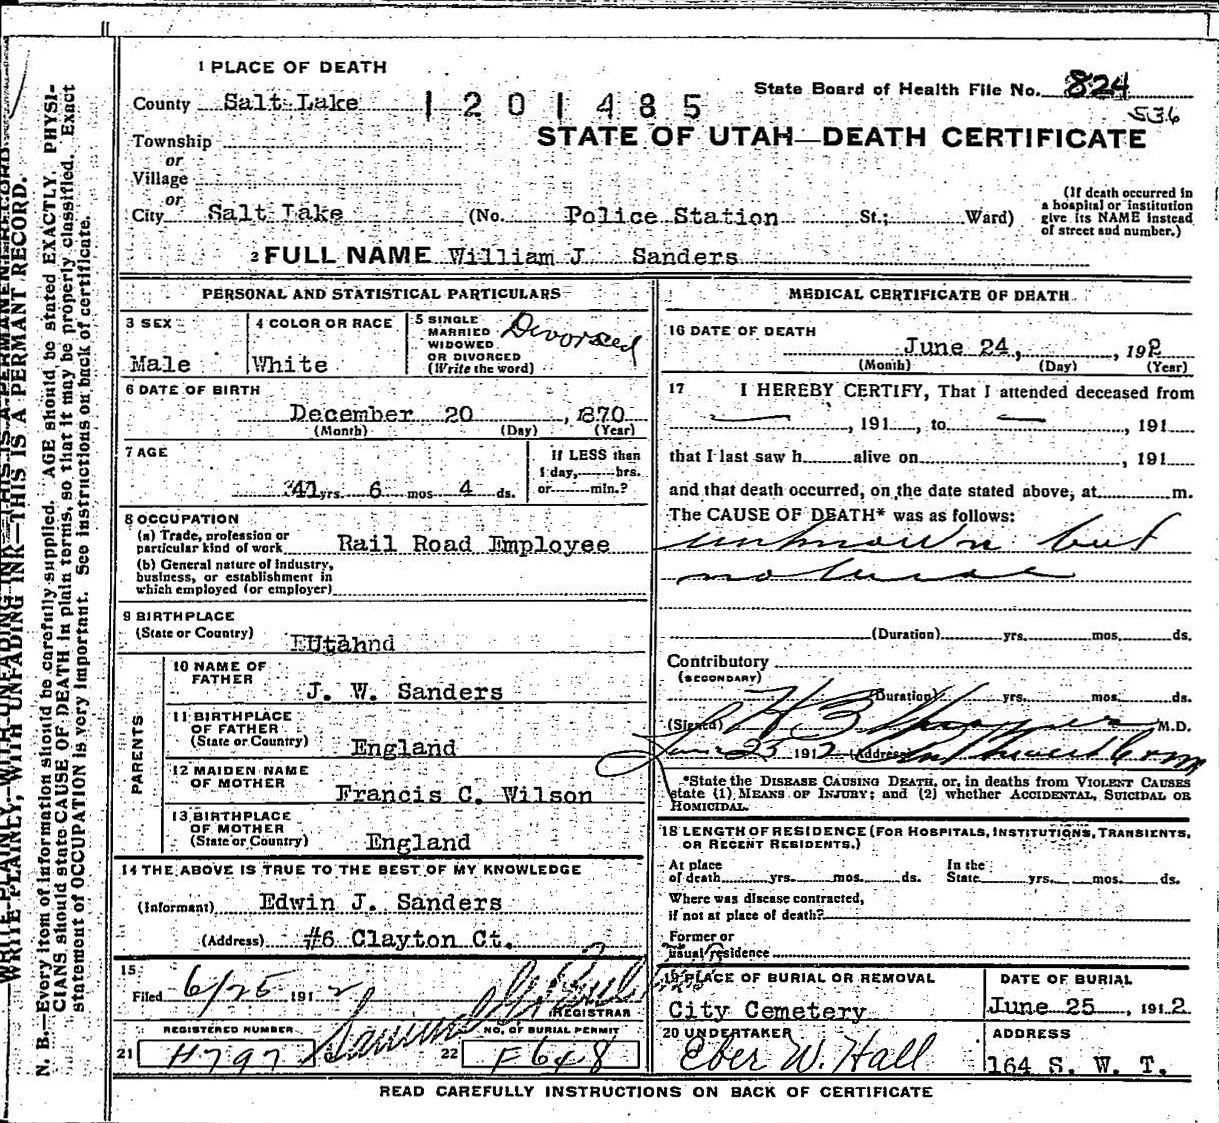 1 PLACE OF DEATH
County Salt Lake 1201485
State Board of Health File No. 824
536
STATE OF UTAH—DEATH CERTIFICATE
Township
or
Village
or
City Salt Lake (No. Police Station St.; Ward)
(If death occurred in
a hospital or institution
give its NAME instead
of street and number.)
2 FULL NAME William J. Sanders
PERSONAL AND STATISTICAL PARTICULARS
3 SEX
Male
4 COLOR OR RACE
White
5 SINGLE
MARRIED
WIDOWED
OR DIVORCED
(Write the word)
Divorsed
6 DATE OF BIRTH
December 20, 1870
(Month) (Day) (Year)
7 AGE
41 yrs. 6 mos 4 ds.
If LESS than
1 day, hrs.
or min.?
8 OCCUPATION
(a) Trade, profession or
particular kind of work Rail Road Employee
(b) General nature of industry,
business, or establishment in
which employed (or employer)
9 BIRTHPLACE
(State or Country)
Utah
PARENTS
10 NAME OF
FATHER
J. W. Sanders
11 BIRTHPLACE
OF FATHER
(State or Country)
England
12 MAIDEN NAME
OF MOTHER
Francis C. Wilson
13 BIRTHPLACE
OF MOTHER
(State or Country)
England
14 THE ABOVE IS TRUE TO THE BEST OF MY KNOWLEDGE
(Informant) Edwin J. Sanders
(Address) #6 Clayton Ct.
15
Filed 6/25 1912
REGISTRAR
REGISTERED NUMBER
21 H797
NO. OF BURIAL PERMIT
22 F648
MEDICAL CERTIFICATE OF DEATH
16 DATE OF DEATH
June 24, , 1912
(Month) (Day) (Year)
17 I HEREBY CERTIFY, That I attended deceased from
, 191 , to , 191
that I last saw h alive on , 191
and that death occurred, on the date stated above, at m.
The CAUSE OF DEATH* was as follows:
unknown but
(Duration) yrs. mos. ds.
Contributory
(SECONDARY)
(Duration) yrs. mos. ds.
(Signed) M.D.
June 25 1912 (Address)
*State the DISEASE CAUSING DEATH, or, in deaths from VIOLENT CAUSES
state (1) MEANS OF INJURY; and (2) whether ACCIDENTAL, SUICIDAL OR
HOMICIDAL.
18 LENGTH OF RESIDENCE (FOR HOSPITALS, INSTITUTIONS, TRANSIENTS,
OR RECENT RESIDENTS.)
At place
of death yrs. mos. ds.
In the
State yrs. mos. ds.
Where was disease contracted,
if not at place of death?
Former or
usual residence
19 PLACE OF BURIAL OR REMOVAL
City Cemetery
DATE OF BURIAL
June 25, 1912
20 UNDERTAKER
Eber W. Hall
ADDRESS
164 S. W. T.
READ CAREFULLY INSTRUCTIONS ON BACK OF CERTIFICATE
WRITE PLAINLY, WITH UNFADING INK—THIS IS A PERMANT RECORD.
N. B.—Every item of information should be carefully supplied. AGE should be stated EXACTLY. PHYSI-
CIANS should state CAUSE OF DEATH in plain terms, so that it may be properly classified. Exact
statement of OCCUPATION is very important. See instructions on back of certificate.